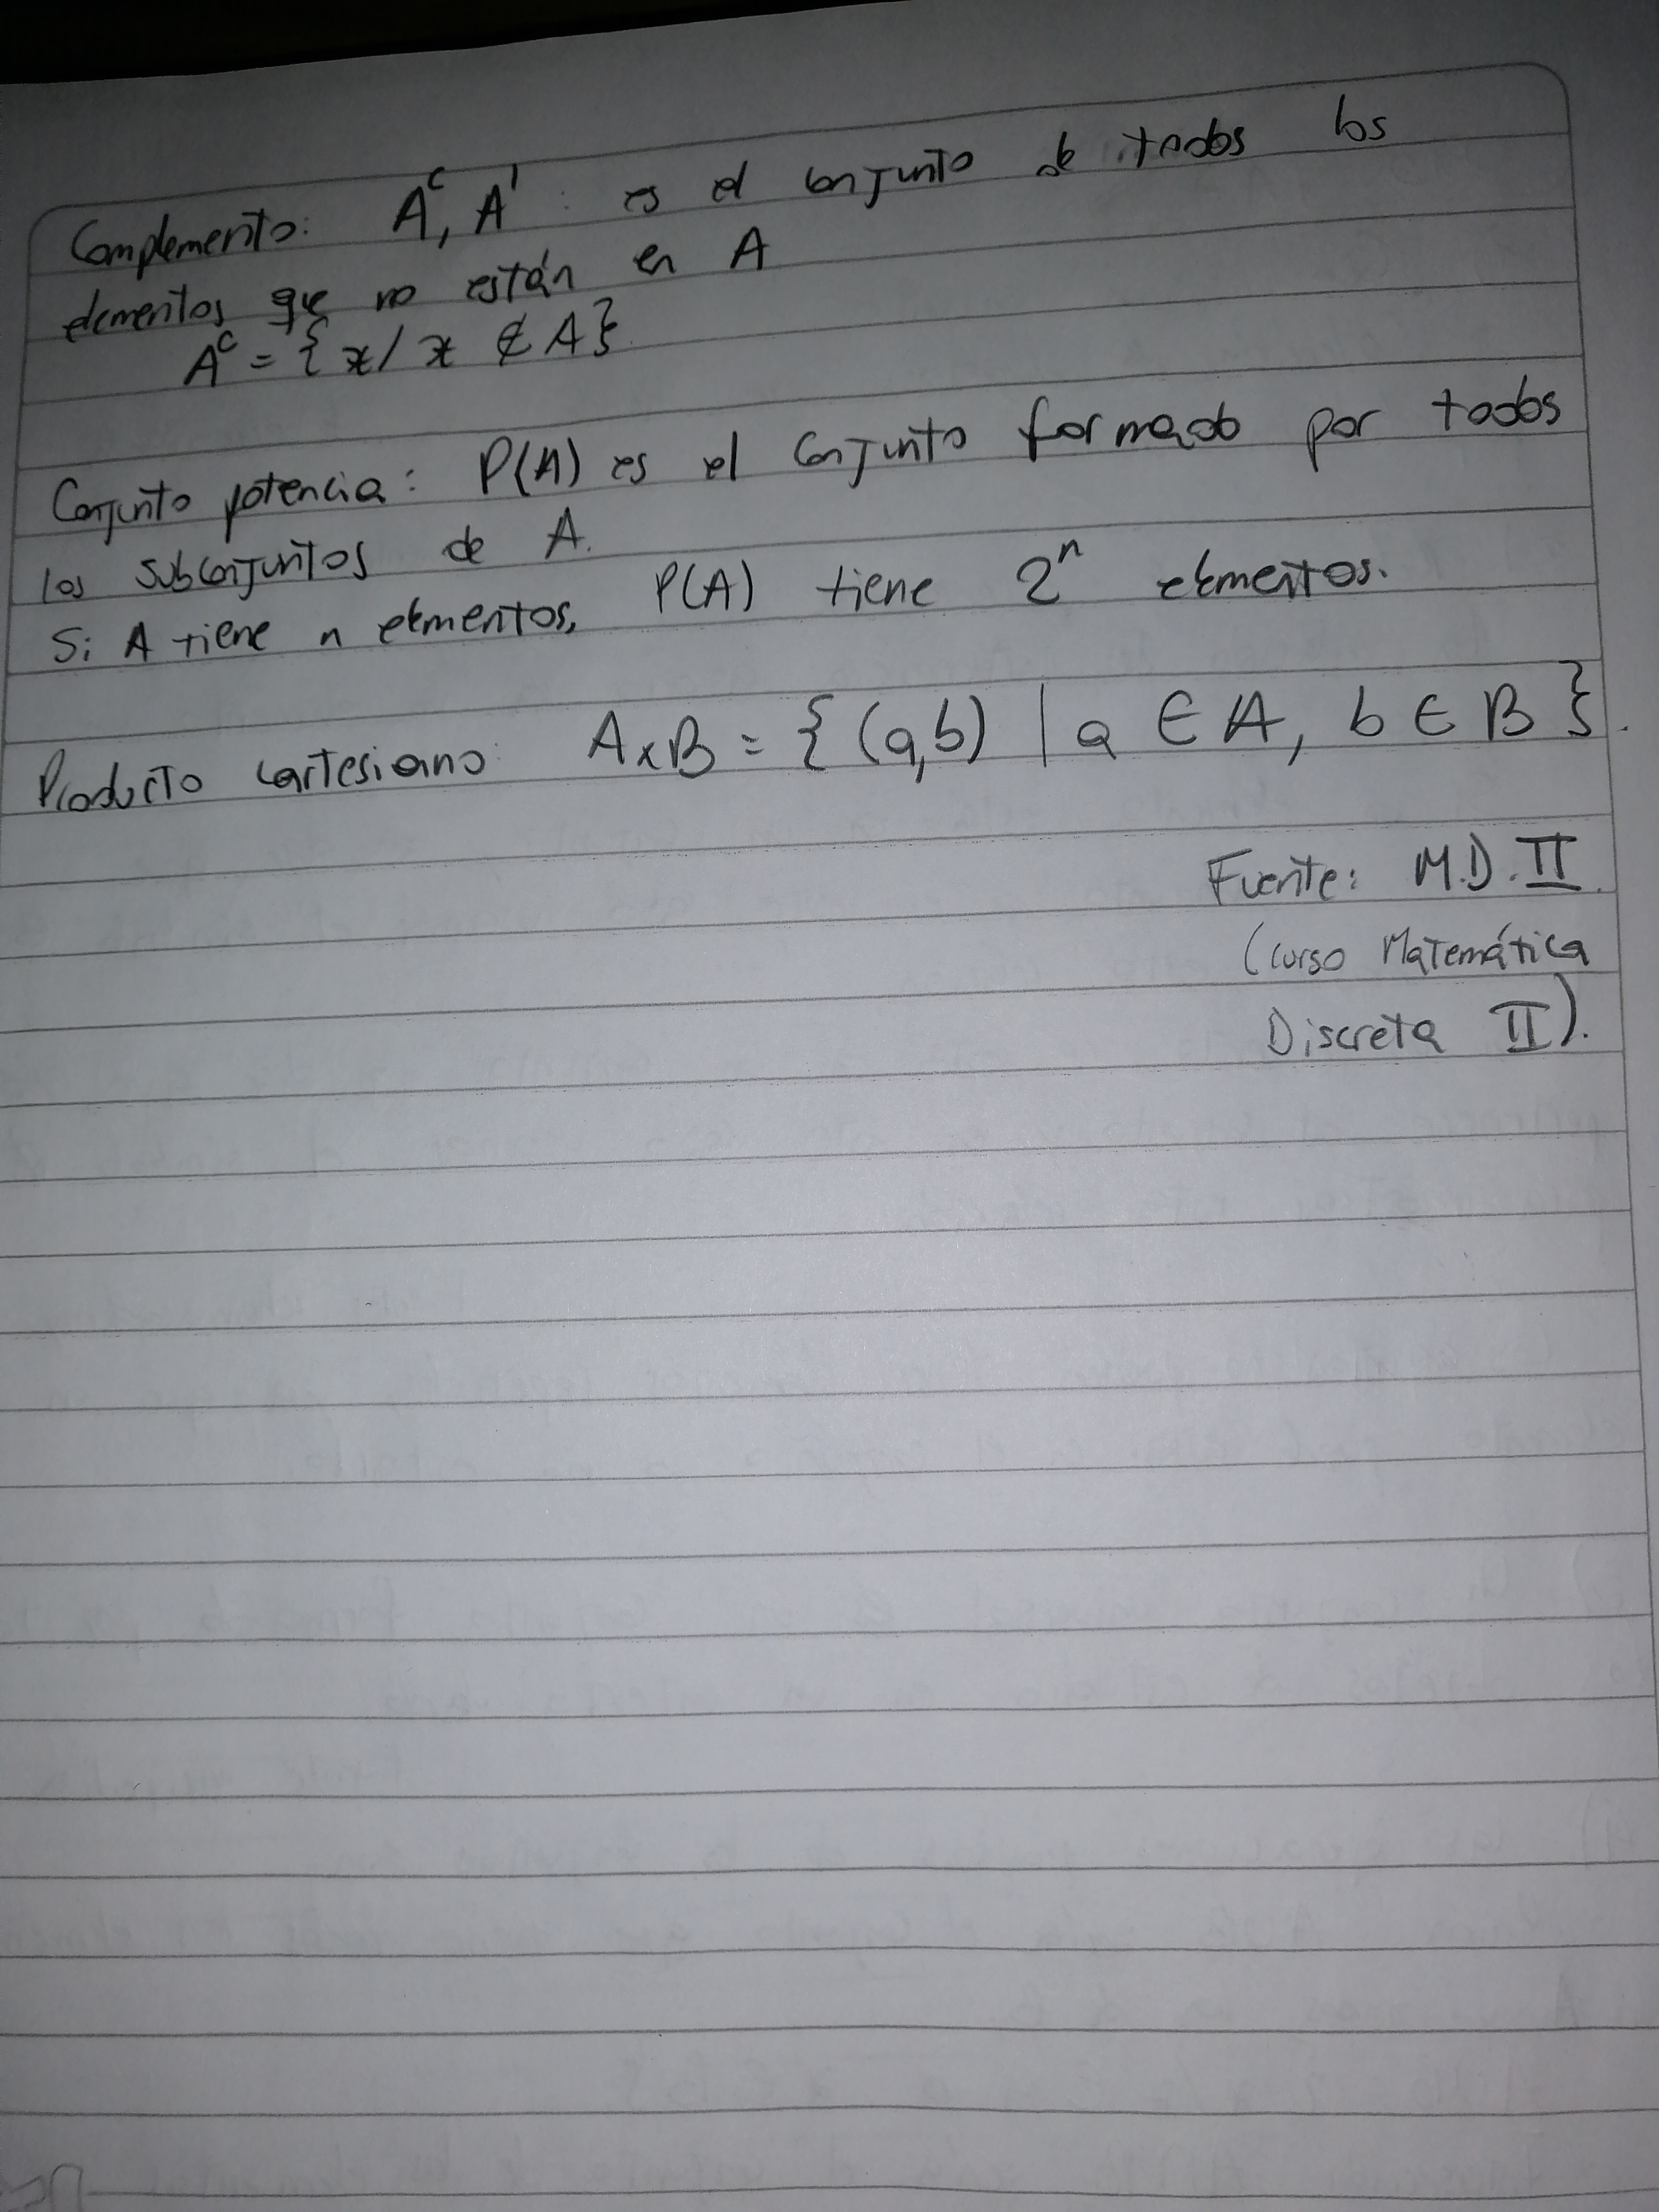 Complemento: Aᶜ, A' : es el conjunto de todos los
elementos que no están en A
Aᶜ = { x / x ∉ A }
Conjunto potencia: P(A) es el conjunto formado por todos
los subconjuntos de A.
Si A tiene n elementos, P(A) tiene 2ⁿ elementos.
Producto cartesiano: A×B = { (a,b) | a ∈ A, b ∈ B }.
Fuente: M.D. II.
(Curso Matemática
Discreta II).